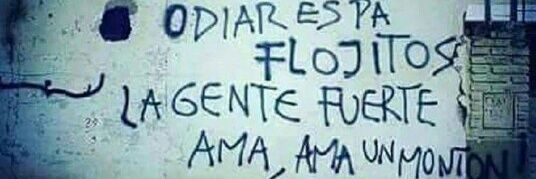 ODIAR ES PA
FLOJITOS
LA GENTE FUERTE
AMA, AMA UN MONTON!